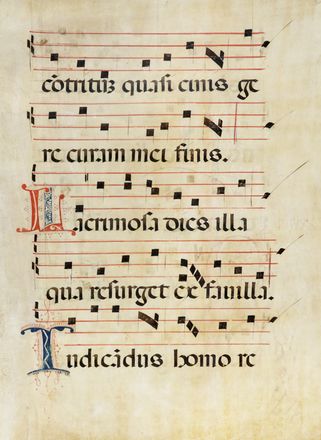 cōtritũ quasi cinis ge
re curam mei finis.
Lacrimosa dies illa
qua resurget ex fauilla.
Iudicādus homo re